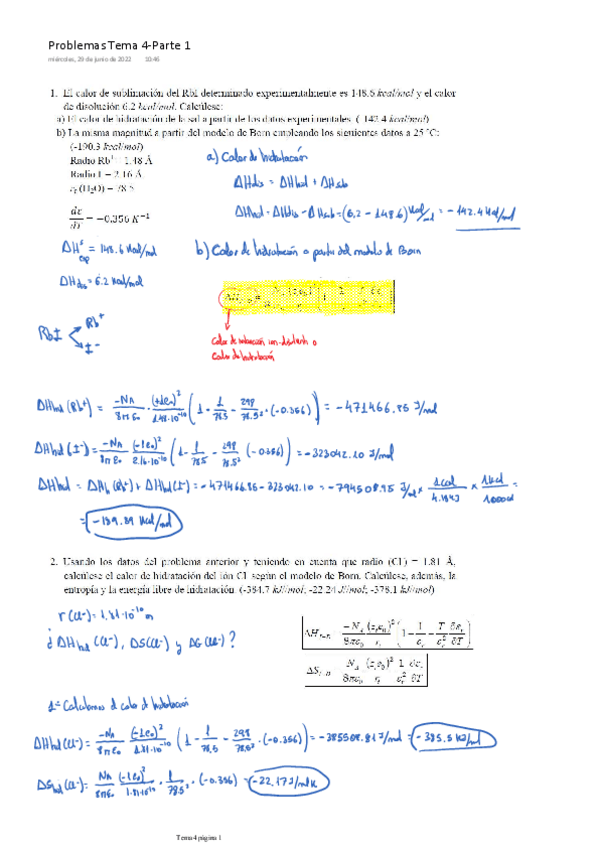 Problemas Tema 4-Parte 1
miércoles, 29 de junio de 2022 10:46
1. El calor de sublimación del RbI determinado experimentalmente es 148.6 kcal/mol y el calor
de disolución 6.2 kcal/mol. Calcúlese:
a) El calor de hidratación de la sal a partir de los datos experimentales. (-142.4 kcal/mol)
b) La misma magnitud a partir del modelo de Born empleando los siguientes datos a 25 °C:
(-190.3 kcal/mol)
Radio Rb⁺ = 1.48 Å
Radio I⁻ = 2.16 Å
εr (H₂O) = 78.5
dε/dT = -0.356 K⁻¹
a) Calor de hidratación
ΔHdis = ΔHhid + ΔHsub
ΔHhid = ΔHdis - ΔHsub = (6.2 - 148.6) Kcal/mol = -142.4 Kcal/mol
ΔHˢexp = 148.6 Kcal/mol
ΔHdis = 6.2 Kcal/mol
b) Calor de hidratación a partir del modelo de Born
RbI
Rb⁺
I⁻
Calor de
Calor de hidratación
ΔHhid (Rb⁺) = -NA/8πε₀ · (+1e₀)²/1.48·10⁻¹⁰ (1 - 1/78.5 - 298/78.5² · (-0.356)) = -471466.85 J/mol
ΔHhid (I⁻) = -NA/8πε₀ · (-1e₀)²/2.16·10⁻¹⁰ (1 - 1/78.5 - 298/78.5² (-0.356)) = -323042.10 J/mol
ΔHhid = ΔHh (Rb⁺) + ΔHhid (I⁻) = -471466.85 - 323042.10 = -794508.95 J/mol × 1cal/4.184J × 1kcal/1000cal =
= -189.89 Kcal/mol
2. Usando los datos del problema anterior y teniendo en cuenta que radio (Cl⁻) = 1.81 Å,
calcúlese el calor de hidratación del ión Cl⁻ según el modelo de Born. Calcúlese, además, la
entropía y la energía libre de hidratación. (-384.7 kJ/mol; -22.24 J/mol; -378.1 kJ/mol)
r(Cl⁻) = 1.81·10⁻¹⁰ m
¿ΔHhid (Cl⁻), ΔS(Cl⁻) y ΔG(Cl⁻)?
ΔH = -NA/8πε₀ (zᵢe₀)²/rᵢ (1 - 1/εr - T/εr² ∂εr/∂T)
ΔS = NA/8πε₀ (zᵢe₀)²/rᵢ 1/εr² dεr/∂T
1º Calculamos el calor de hidratación
ΔHhid (Cl⁻) = -NA/8πε₀ · (-1e₀)²/1.81·10⁻¹⁰ (1 - 1/78.5 - 298/78.5² · (-0.356)) = -385508.81 J/mol = -385.5 KJ/mol
ΔShid (Cl⁻) = NA/8πε₀ · (-1e₀)²/1.81·10⁻¹⁰ · 1/78.5² · (-0.356) = -22.17 J/mol
Tema 4 página 1